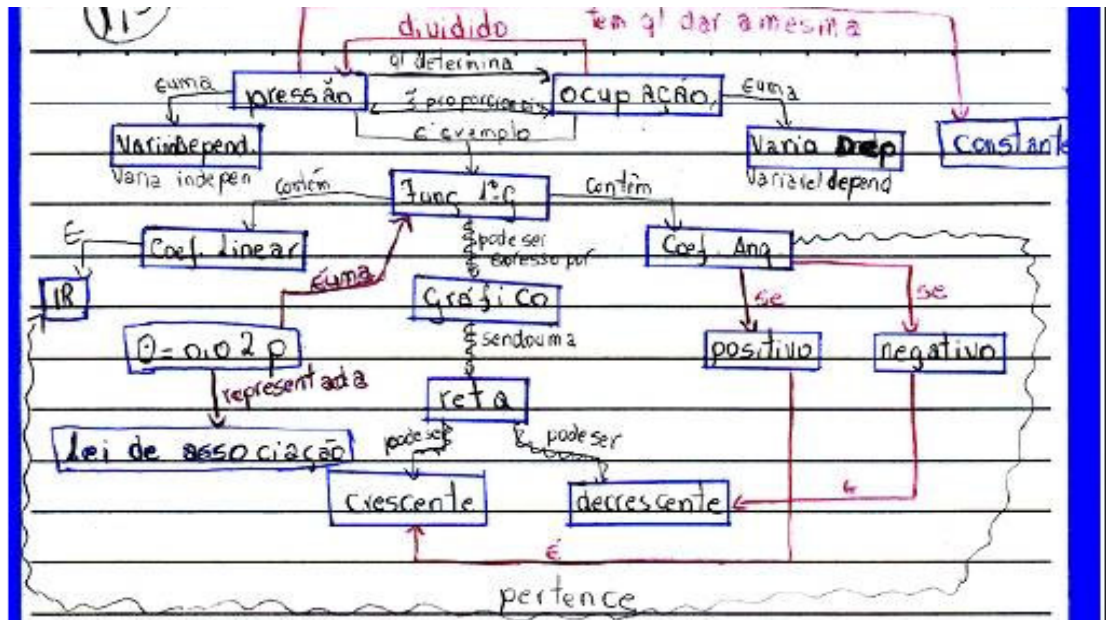 dividido
tem q| dar a mesma
q| determina
é uma
pressão
ocupação
é uma
é exemplo
Varia Dep
Constante
Varia indepen
contém
Func 1º G
contém
Variavel depend
É
Coef. Linear
pode ser
expresso por
Coef. Ang.
IR
É uma
gráfico
se
se
O = 0,02 p
sendo uma
positivo
negativo
representada
reta
Lei de associação
pode ser
pode ser
crescente
decrescente
é
É
pertence